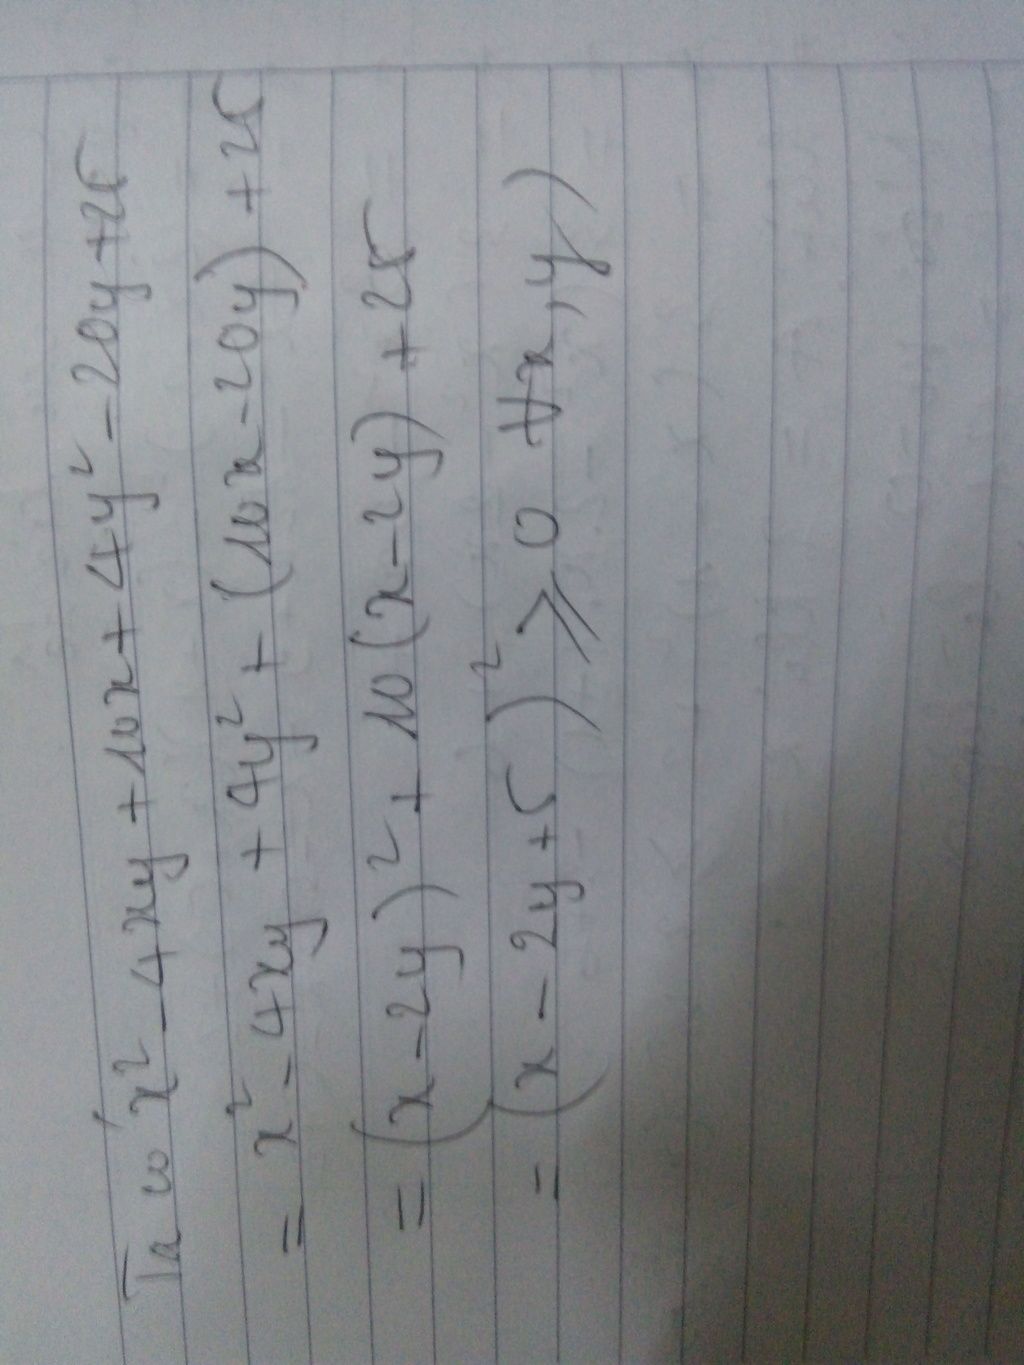 Ta có x² - 4xy + 10x + 4y² - 20y + 25
= x² - 4xy + 4y² + (10x - 20y) + 25
= (x - 2y)² + 10(x - 2y) + 25
= (x - 2y + 5)² ⩾ 0 ∀x, y)